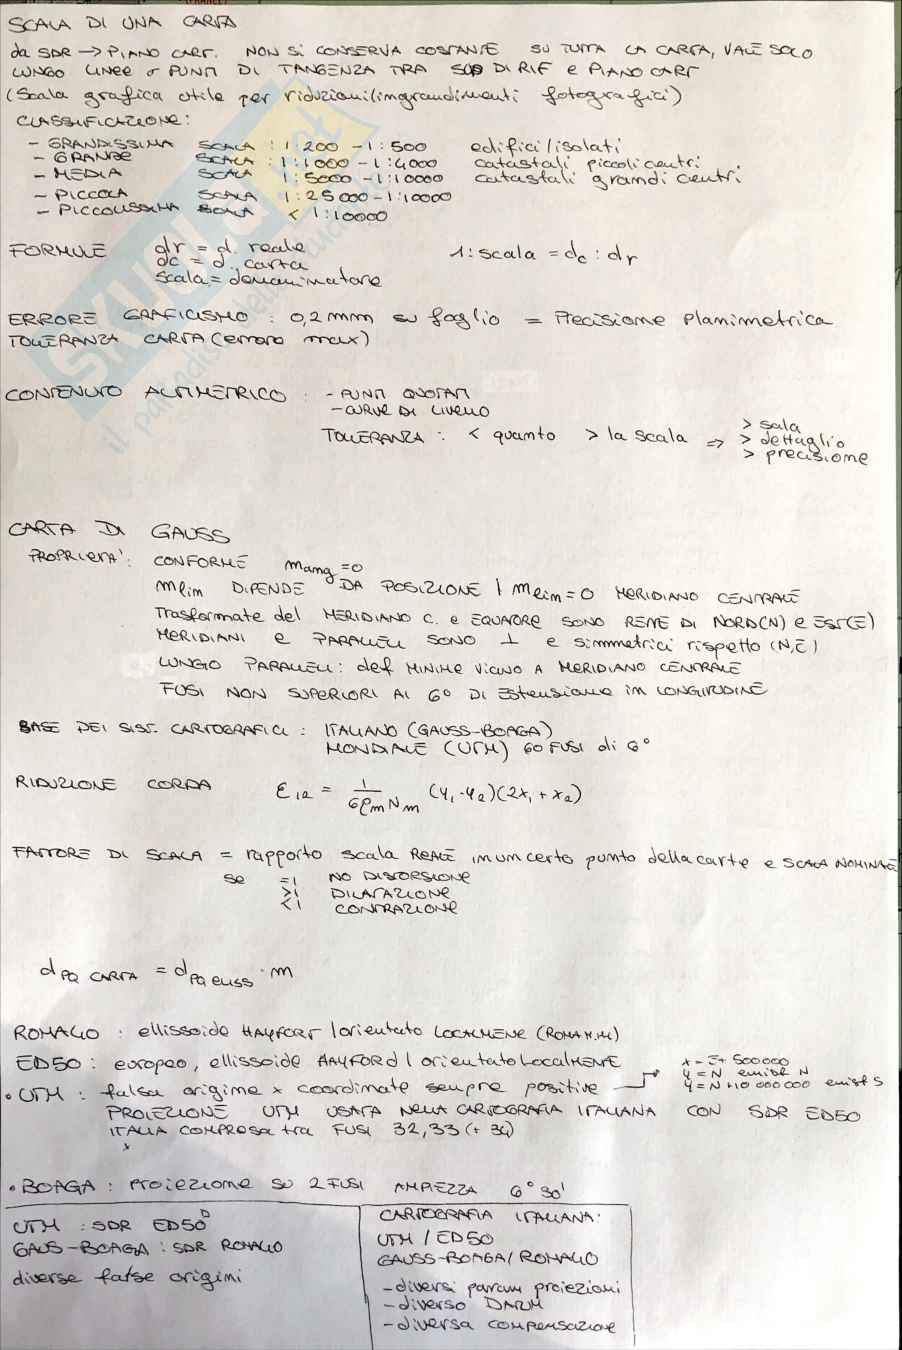 SCALA DI UNA CARTA
da SDR → PIANO CART. NON SI CONSERVA COSTANTE SU TUTTA LA CARTA, VALE SOLO
LUNGO LINEE o PUNTI DI TANGENZA TRA SDR DI RIF e PIANO CART
(Scala grafica utile per riduzioni/ingrandimenti fotografici)
CLASSIFICAZIONE:
- GRANDISSIMA SCALA : 1:200 - 1:500 edifici/isolati
- GRANDE SCALA : 1:1000 - 1:4000 catastali piccoli centri
- MEDIA SCALA 1:5000 - 1:10000 catastali grandi centri
- PICCOLA SCALA 1:25000 - 1:10000
- PICCOLISSIMA SCALA < 1:10000
FORMULE dr = d. reale 1: scala = dc : dr
dc = d. carta
scala = denominatore
ERRORE GRAFICISMO : 0,2 mm su foglio = Precisione Planimetrica
TOLLERANZA CARTA (errore max)
CONTENUTO ALTIMETRICO : - PUNTI QUOTATI
- CURVE DI LIVELLO
TOLLERANZA : < quanto > la scala ⇒ > scala
> dettaglio
> precisione
CARTA DI GAUSS
PROPRIETA' : CONFORME mang = 0
mlin DIPENDE DA POSIZIONE | mlin = 0 MERIDIANO CENTRALE
Trasformate del MERIDIANO C. e EQUATORE SONO RETTE DI NORD(N) e EST(E)
MERIDIANI e PARALLELI SONO ⊥ e simmetrici rispetto (N,E)
LUNGO PARALLELI : def MINIME VICINO A MERIDIANO CENTRALE
FUSI NON SUPERIORI AI 6° DI Estensione in LONGITUDINE
BASE DEI SIST. CARTOGRAFICI : ITALIANO (GAUSS-BOAGA)
MONDIALE (UTM) 60 FUSI di 6°
RIDUZIONE CORDA ε12 = 1/6ρmNm (y1-y2)(2x1+x2)
FATTORE DI SCALA = rapporto scala REALE in un certo punto della carte e SCALA NOMINALE
se =1 NO DISTORSIONE
>1 DILATAZIONE
<1 CONTRAZIONE
dPQ CARTA = dPQ ELLISS · m
ROMA40 : ellissoide HAYFORT / orientato LOCALMENE (ROMA M.M)
ED50 : europeo, ellissoide HAYFORD / orientato LocalMENTE
x = E + 500000
y = N emisf N
• UTM : falsa origine x coordinate sempre positive → y = N + 10 000 000 emisf S
PROIEZIONE UTM USATA NELLA CARTOGRAFIA ITALIANA CON SDR ED50
ITALIA COMPRESA tra FUSI 32, 33 (+ 34)
• BOAGA : Proiezione SU 2 FUSI AMPIEZZA 6° 30'
UTM : SDR ED50
GAUS-BOAGA : SDR ROMA40
diverse false origini
CARTOGRAFIA ITALIANA:
UTM / ED50
GAUSS-BOAGA / ROMA40
- diversi param proiezioni
- diverso DATUM
- diversa compensazione